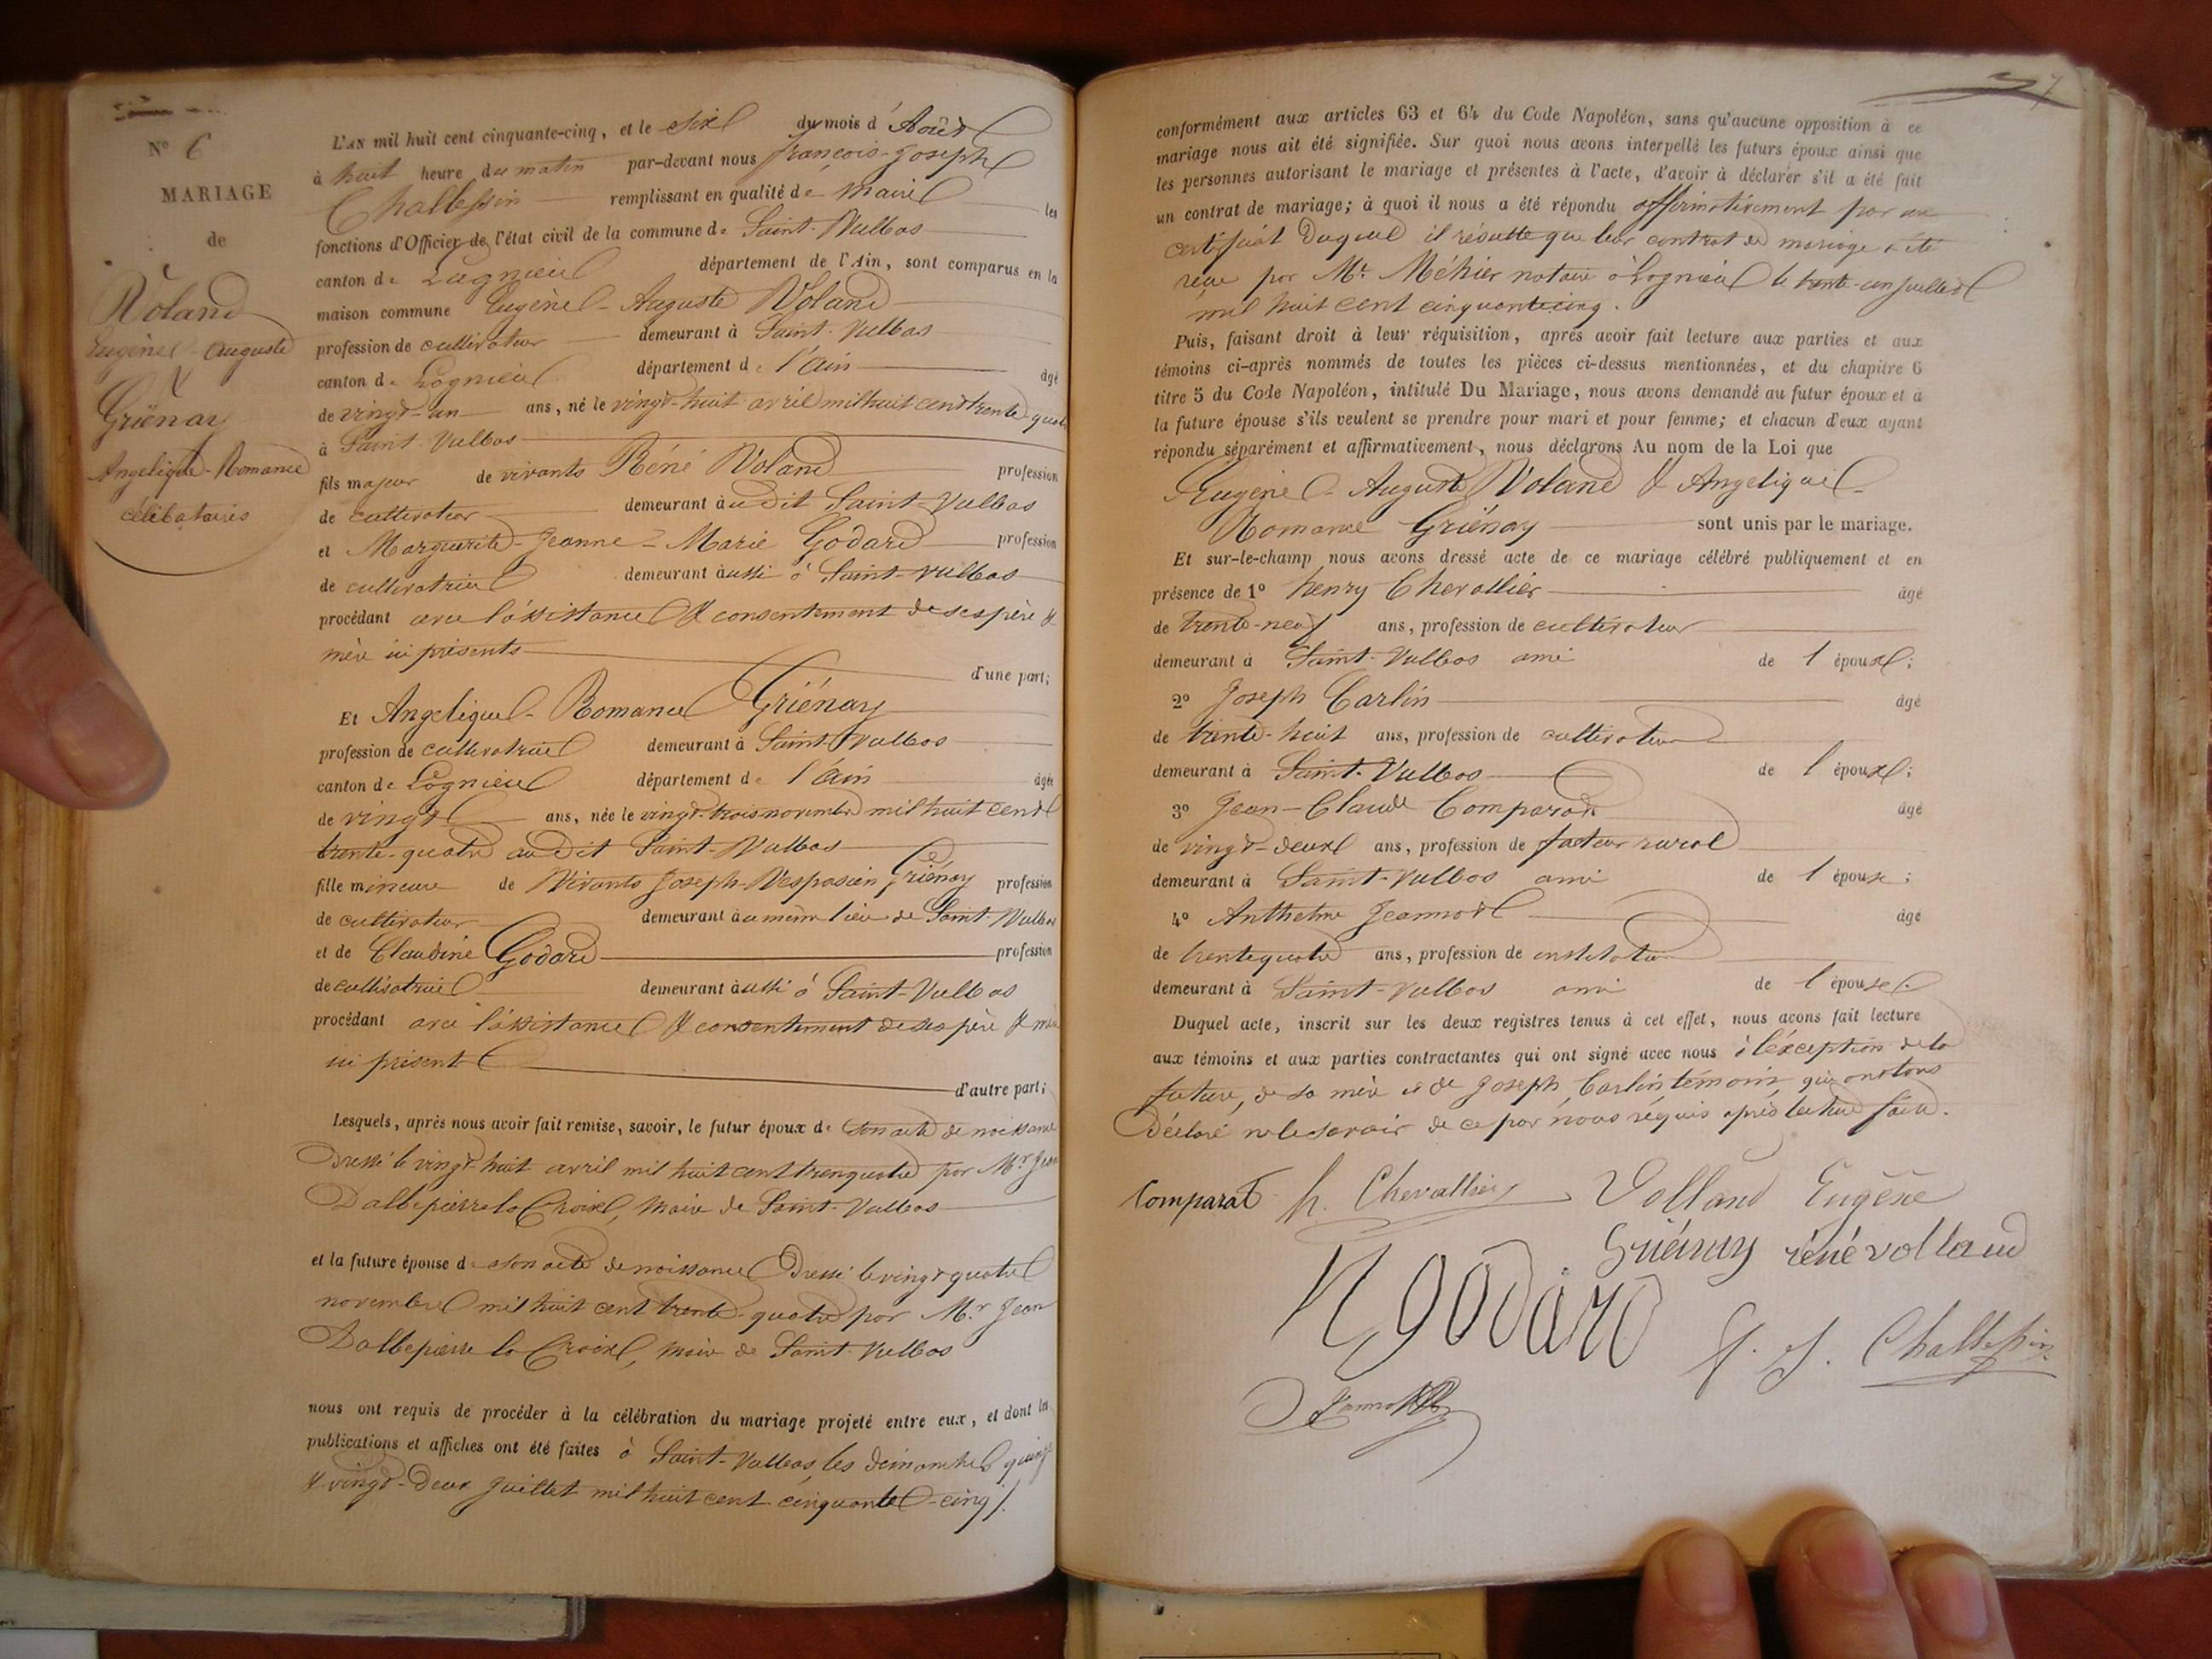 N° 6
MARIAGE
de
Voland
Eugène-Auguste
&
Griénay
Angelique-Romance
célibataires
L'AN mil huit cent cinquante-cinq, et le six du mois d'Août
à huit heure du matin par-devant nous françois-joseph
Challessin remplissant en qualité de maire les
fonctions d'Officier de l'état civil de la commune de Saint-Vulbas
canton de Lagnieu département de l'Ain, sont comparus en la
maison commune Eugène-Auguste Voland
profession de cultivateur demeurant à Saint-Vulbas
canton de Lagnieu département de l'Ain âgé
de vingt-un ans, né le vingt-huit avril mil huit cent trente-quatre
à Saint-Vulbas
fils majeur de vivants Réné Voland profession
de cultivateur demeurant audit Saint-Vulbas
et Marguerite-Jeanne-Marie Godard profession
de cultivatrice demeurant aussi à Saint-Vulbas
procédant avec l'assistance & consentement de ses père &
mère ici présents d'une part;
Et Angelique-Romance Griénay
profession de cultivatrice demeurant à Saint-Vulbas
canton de Lagnieu département de l'Ain âgée
de vingt ans, née le vingt-trois novembre mil huit cent
trente-quatre audit Saint-Vulbas
fille mineure de Vivants Joseph-Vespasien Griénay profession
de cultivateur demeurant au même lieu de Saint-Vulbas
et de Claudine Godard profession
de cultivatrice demeurant aussi à Saint-Vulbas
procédant avec l'assistance & consentement de ses père & mère
ici présents d'autre part;
Lesquels, après nous avoir fait remise, savoir, le futur époux de son acte de naissance
Dressé le vingt-huit avril mil huit cent trenquatre par Mr Jean
Dallepierre la Croix, maire de Saint-Vulbas
et la future épouse de son acte de naissance Dressé le vingt quatre
novembre mil huit cent trente-quatre par Mr Jean
Dallepierre la Croix, maire de Saint-Vulbas
nous ont requis de procéder à la célébration du mariage projeté entre eux, et dont les
publications et affiches ont été faites à Saint-Vulbas, les dimanches quinze
& vingt-Deux Juillet mil huit cent cinquante-cinq /.
conformément aux articles 63 et 64 du Code Napoléon, sans qu'aucune opposition à ce
mariage nous ait été signifiée. Sur quoi nous avons interpellé les futurs époux ainsi que
les personnes autorisant le mariage et présentes à l'acte, d'avoir à déclarer s'il a été fait
un contrat de mariage; à quoi il nous a été répondu affirmativement par un
certificat Duquel il résulte que leur contrat de mariage a été
reçu par Me Méhier notaire à Lagnieu le trente-un juillet
mil huit cent cinquantecinq.
Puis, faisant droit à leur réquisition, après avoir fait lecture aux parties et aux
témoins ci-après nommés de toutes les pièces ci-dessus mentionnées, et du chapitre 6
titre 5 du Code Napoléon, intitulé Du Mariage, nous avons demandé au futur époux et à
la future épouse s'ils veulent se prendre pour mari et pour femme; et chacun d'eux ayant
répondu séparément et affirmativement, nous déclarons Au nom de la Loi que
Eugène-Auguste Voland & Angelique-
Romance Griénay sont unis par le mariage.
Et sur-le-champ nous avons dressé acte de ce mariage célébré publiquement et en
présence de 1° henry Chevallier âgé
de trente-neuf ans, profession de cultivateur
demeurant à Saint-Vulbas ami de l'époux;
2° Joseph Carlin âgé
de trente-huit ans, profession de cultivateur
demeurant à Saint-Vulbas de l'époux;
3° Jean-Claude Comparat âgé
de vingt-deux ans, profession de facteur rural
demeurant à Saint-Vulbas ami de l'épouse;
4° Anthelme Jeannot âgé
de trentequatre ans, profession de instituteur
demeurant à Saint-Vulbas ami de l'épouse.
Duquel acte, inscrit sur les deux registres tenus à cet effet, nous avons fait lecture
aux témoins et aux parties contractantes qui ont signé avec nous à l'éxception de la
future, de sa mère et de Joseph Carlin témoin qui ont tous
Déclaré ne le savoir de ce par nous réquis après lecture faite.
Comparat h. Chevallier Volland Eugène
Griénay réné volland
godard
f. J. Challessin